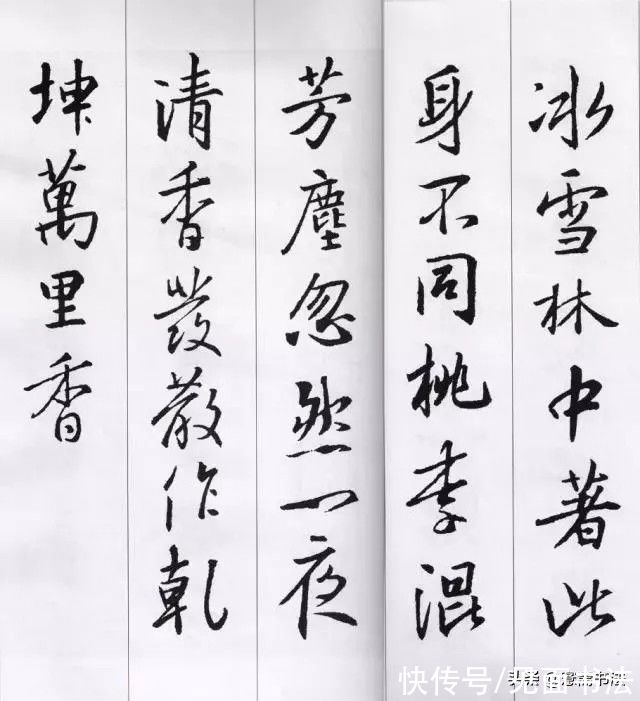 冰雪林中著此
身不同桃李混
芳塵忽然一夜
清香發散作乾
坤萬里香
快传号/见面书法